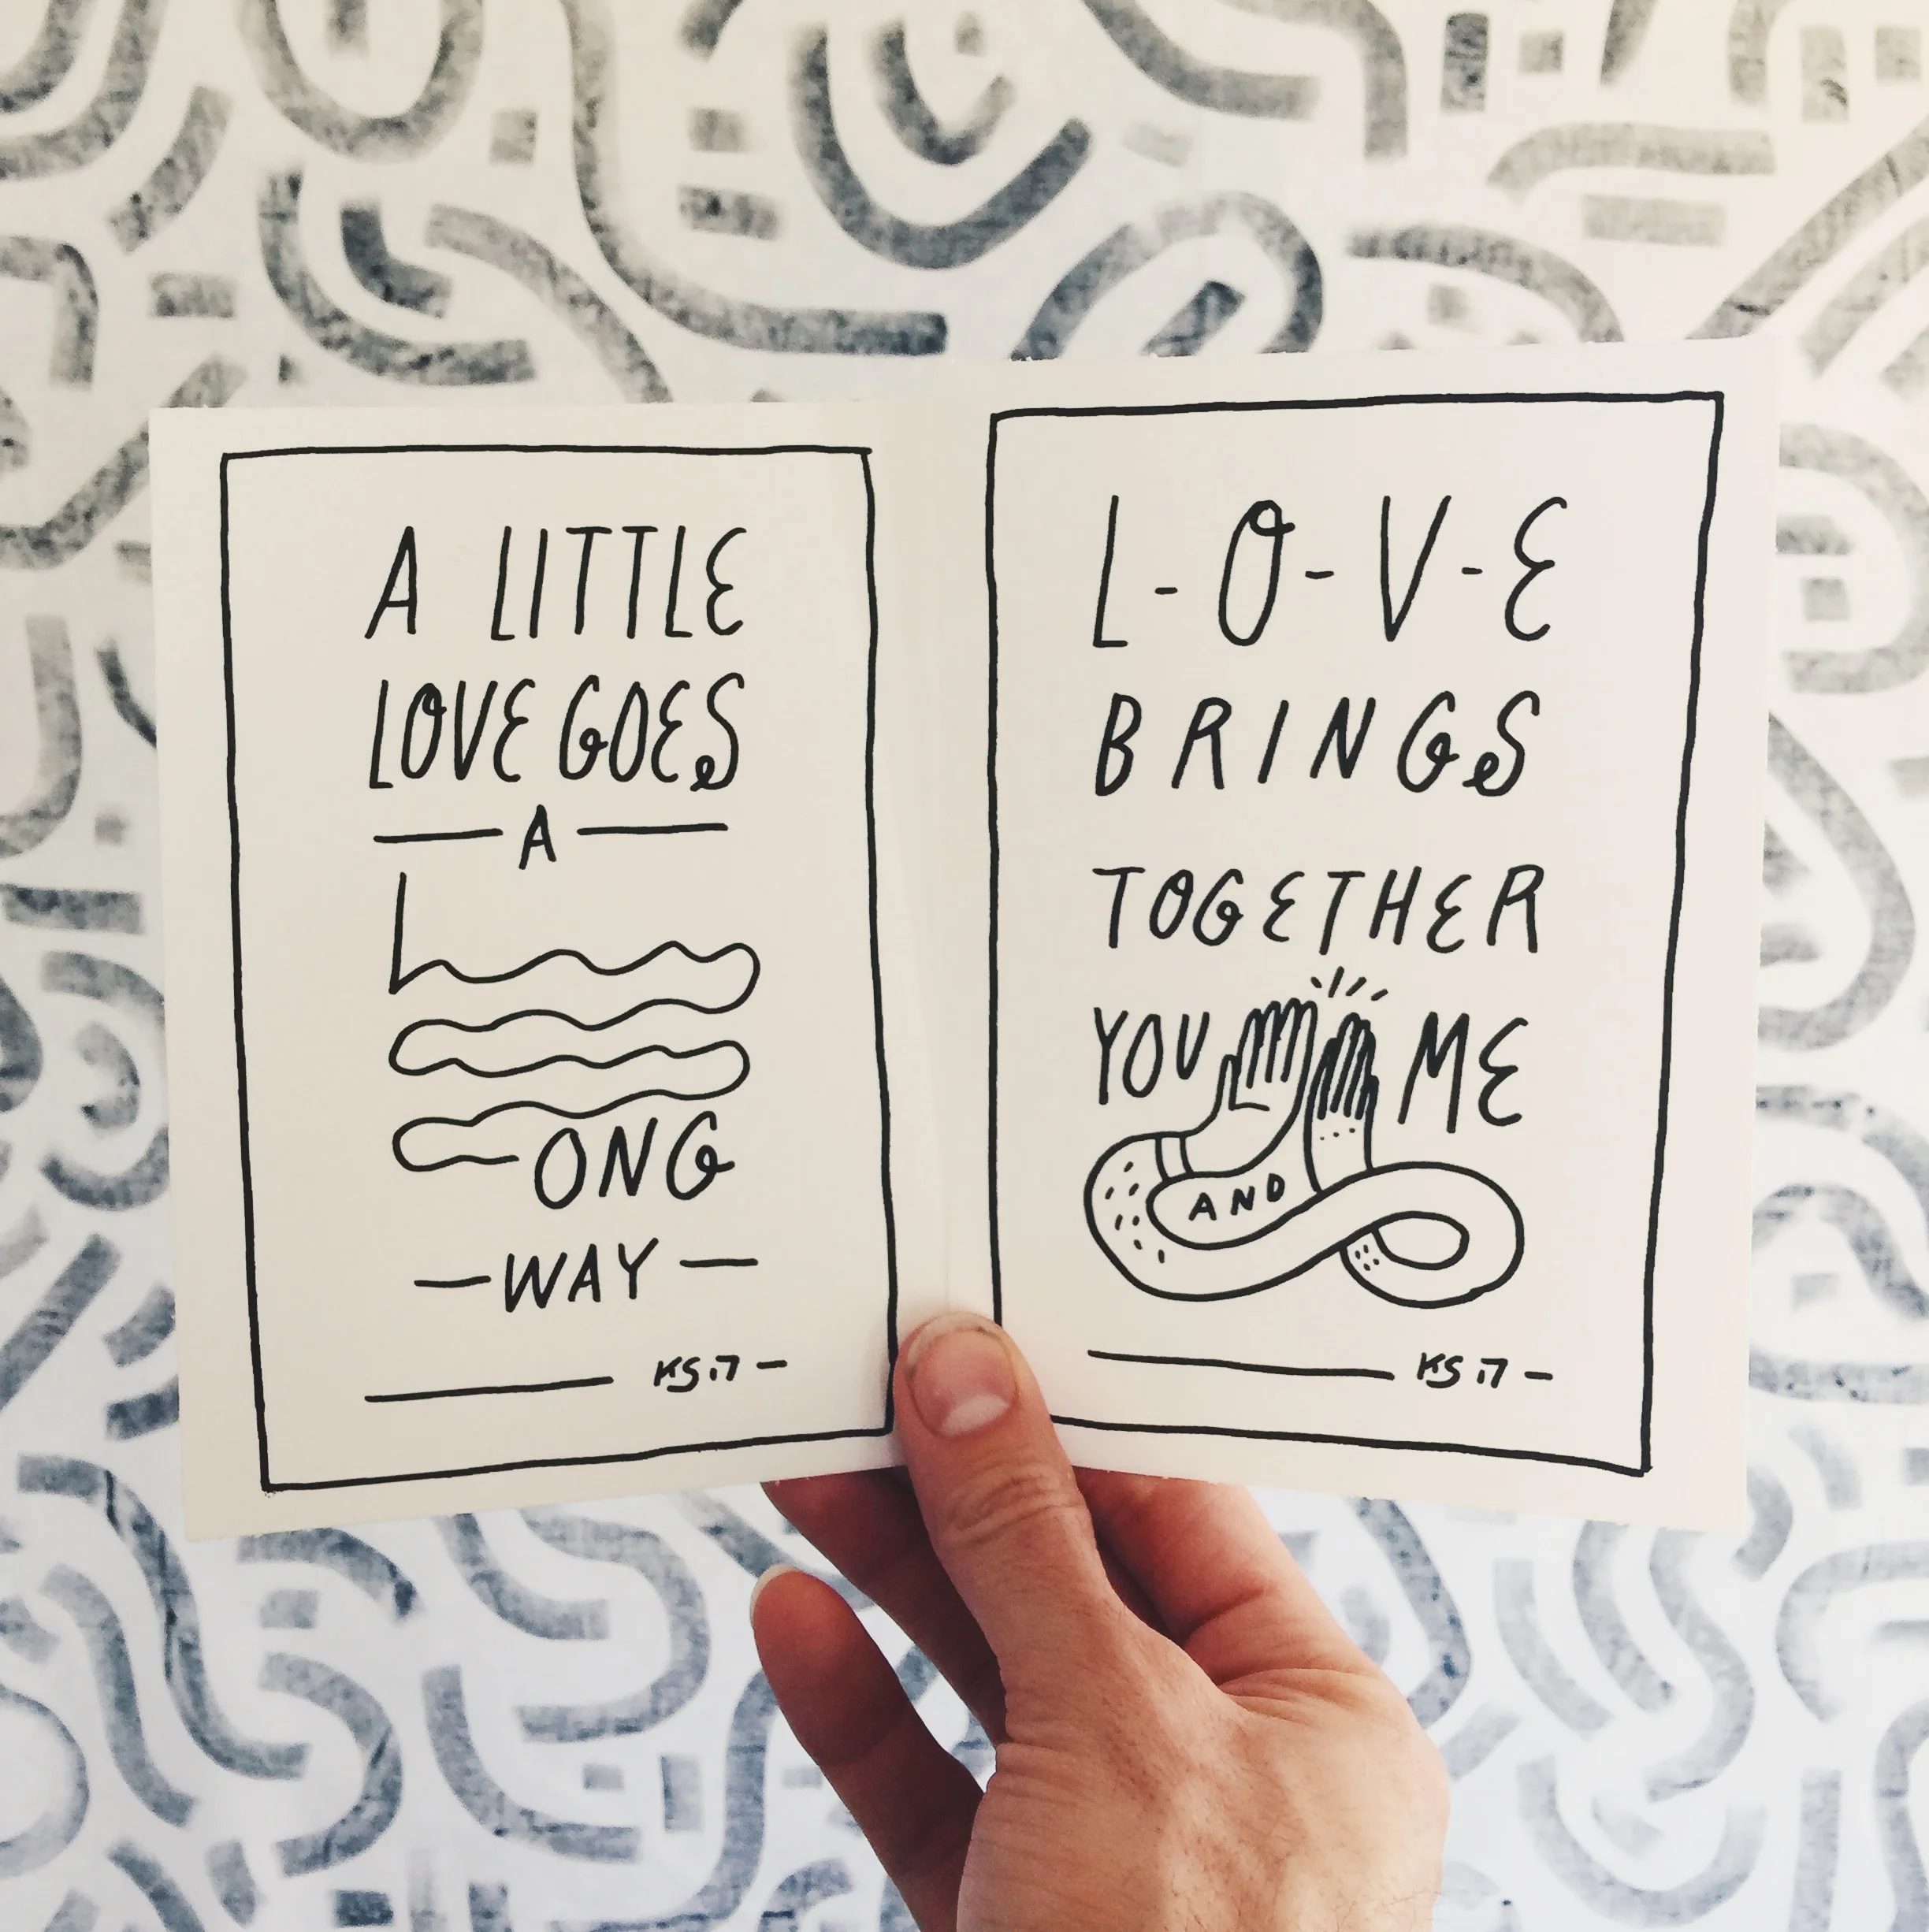 A LITTLE
LOVE GOES
A
LONG
WAY
KS.17
L-O-V-E
BRINGS
TOGETHER
YOU ME
AND
KS.17